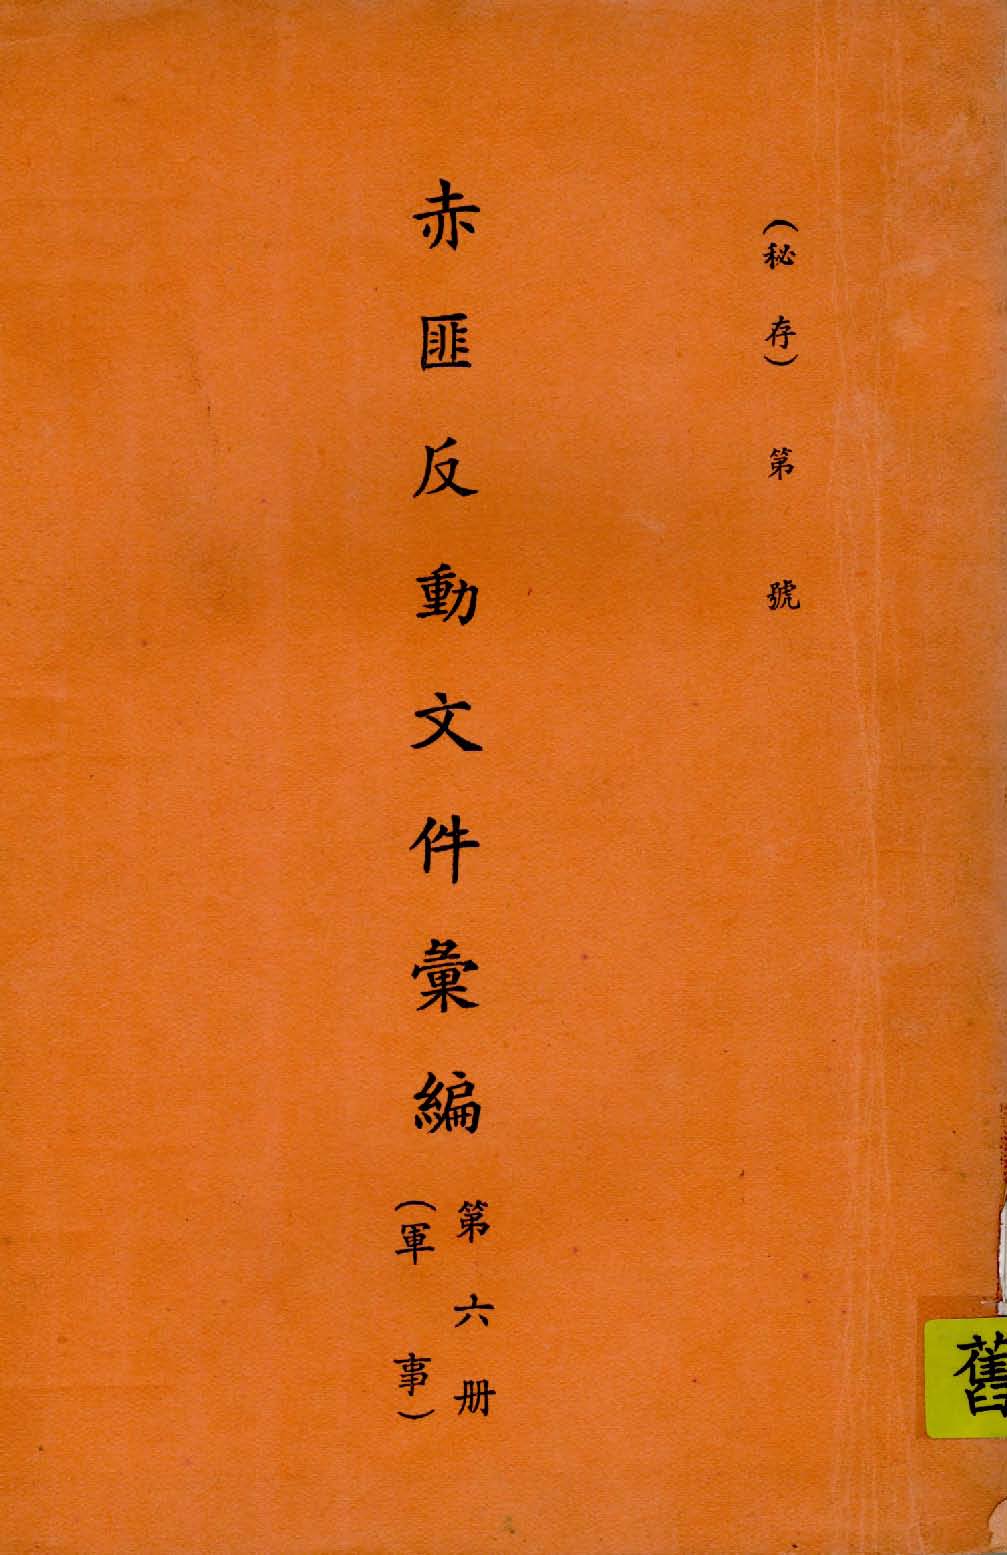 （秘存）第　號
赤匪反動文件彙編
第六册
（軍事）
舊